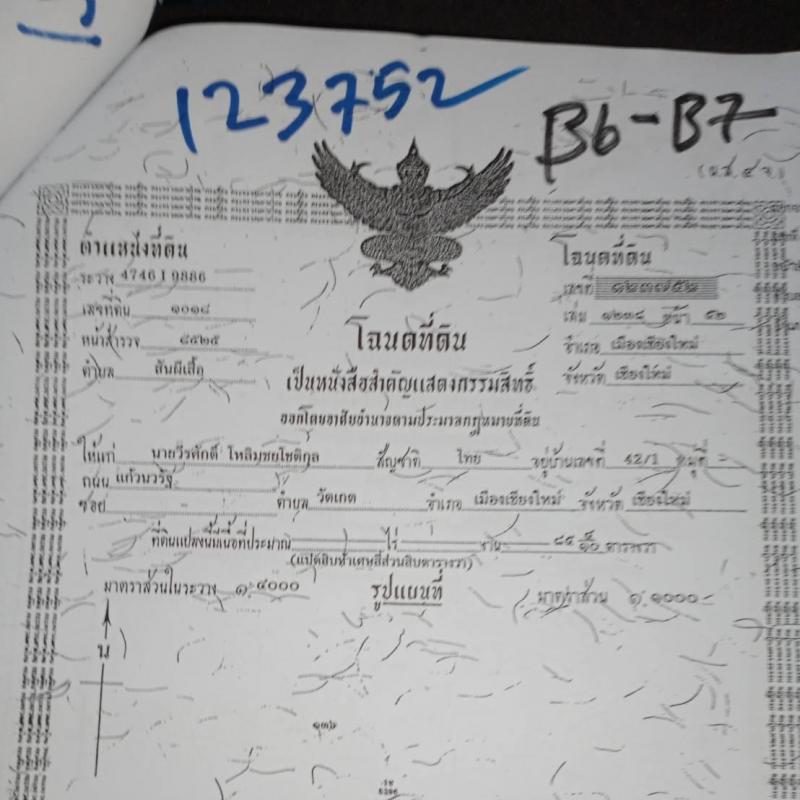 123752
B6-B7
(น.ส. ๔ จ.)
ตำแหน่งที่ดิน
ระวาง 4746 I 9886
เลขที่ดิน ๑๐๑๘
หน้าสำรวจ ๘๕๒๕
ตำบล สันผีเสื้อ
โฉนดที่ดิน
เลขที่ ๑๒๓๗๕๒
เล่ม ๑๒๓๘ หน้า ๕๒
อำเภอ เมืองเชียงใหม่
จังหวัด เชียงใหม่
โฉนดที่ดิน
เป็นหนังสือสำคัญแสดงกรรมสิทธิ์
ออกโดยอาศัยอำนาจตามประมวลกฎหมายที่ดิน
ให้แก่ นายวีรศักดิ์ โหลิมชยโชติกุล สัญชาติ ไทย อยู่บ้านเลขที่ 42/1 หมู่ที่ -
ถนน แก้วนวรัฐ
ซอย - ตำบล วัดเกต อำเภอ เมืองเชียงใหม่ จังหวัด เชียงใหม่
ที่ดินแปลงนี้มีเนื้อที่ประมาณ ไร่ งาน ๘๕ ตารางวา
(แปดสิบห้าเศษสี่ส่วนสิบตารางวา)
มาตราส่วนในระวาง ๑:๔๐๐๐
รูปแผนที่
มาตราส่วน ๑:๑๐๐๐
น